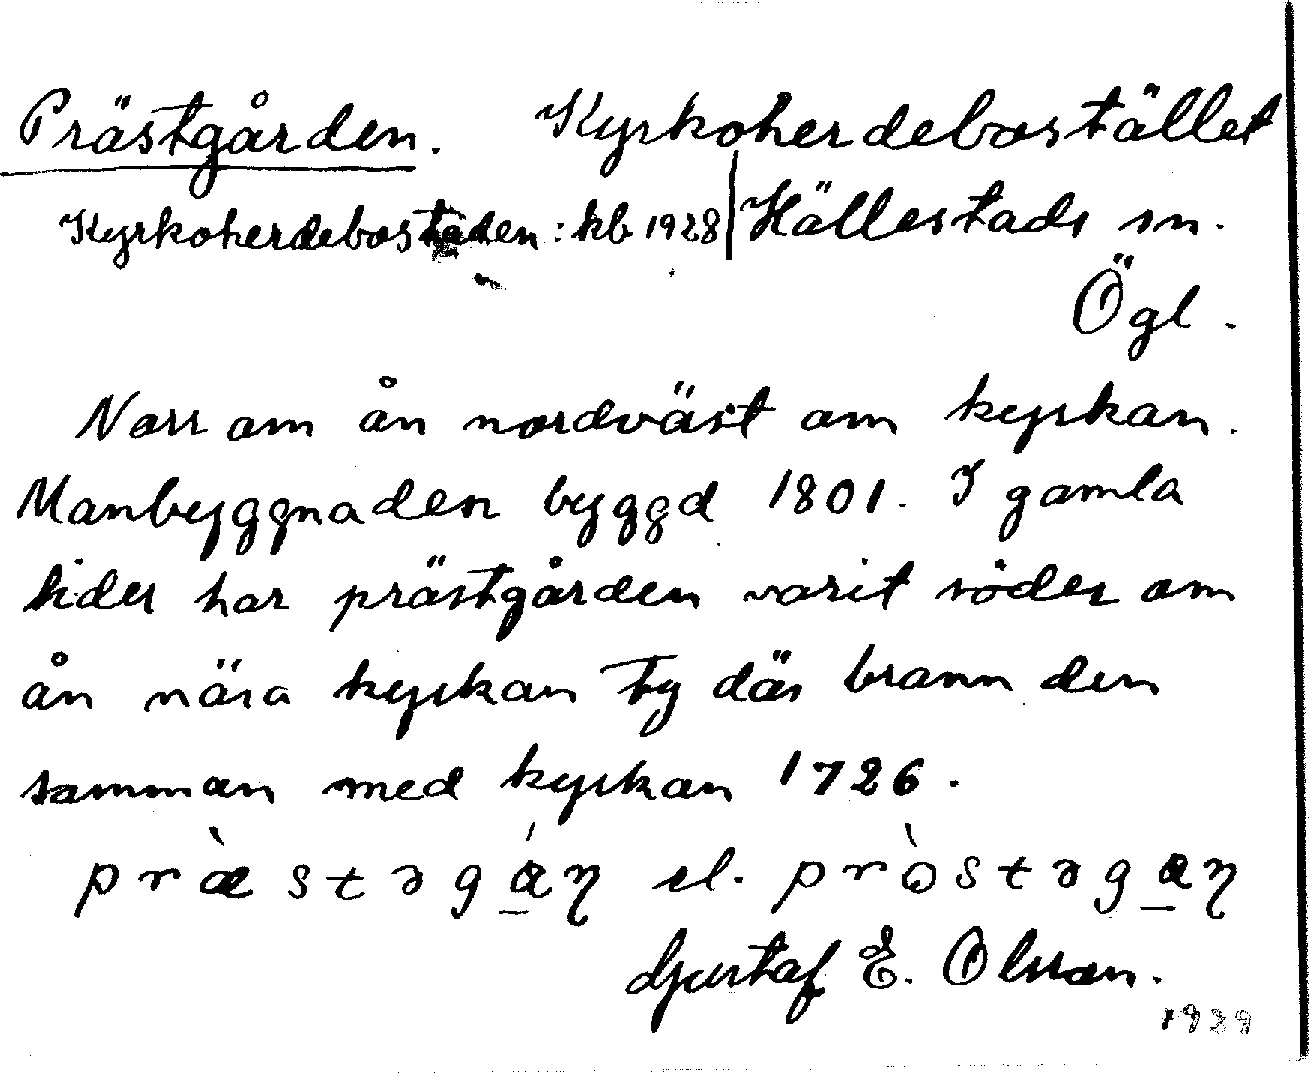 Prästgården. Kyrkoherdebostället
Kyrkoherdebostaden : kb 1928 | Hällestads sn.
Ögl.
Norr om ån nordväst om kyrkan.
Manbyggnaden byggd 1801. I gamla
tider har prästgården varit söder om
ån nära kyrkan ty där brann den
samman med kyrkan 1726.
præ̀stəgá̱ŋ el. prɔ̀stəga̱ŋ
Gustaf E. Olsson.
1929